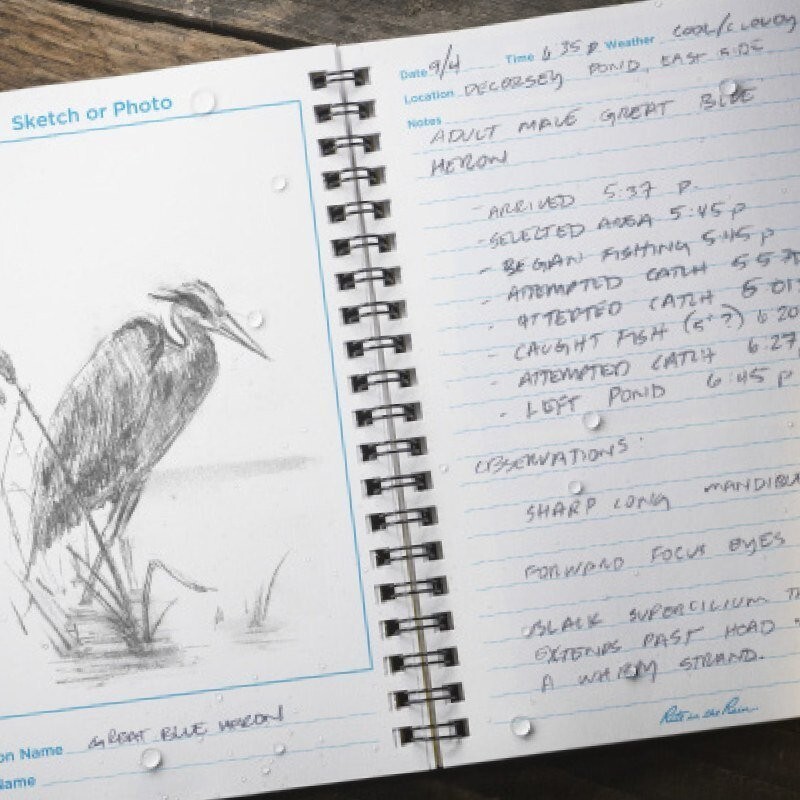 Sketch or Photo
on Name GREAT BLUE HERON
Name
Date 9/4 Time 6 35 P Weather COOL/CLOUDY
Location DECORSEY POND, EAST SIDE
Notes
ADULT MALE GREAT BLUE
HERON
- ARRIVED 5:37 P.
- SELECTED AREA 5:45 P
- BEGAN FISHING 5:45 P
- ATTEMPTED CATCH 5 57
- ATTEPTED CATCH 6 01
- CAUGHT FISH (5"?) 6 20
- ATTEMPTED CATCH 6:27
- LEFT POND 6:45 P
OBSERVATIONS:
SHARP LONG MANDIBU
FORWARD FOCUS EYES
BLACK SUPERCILIUM TH
EXTENDS PAST HEAD
A WHISPY STRAND.
Rite in the Rain